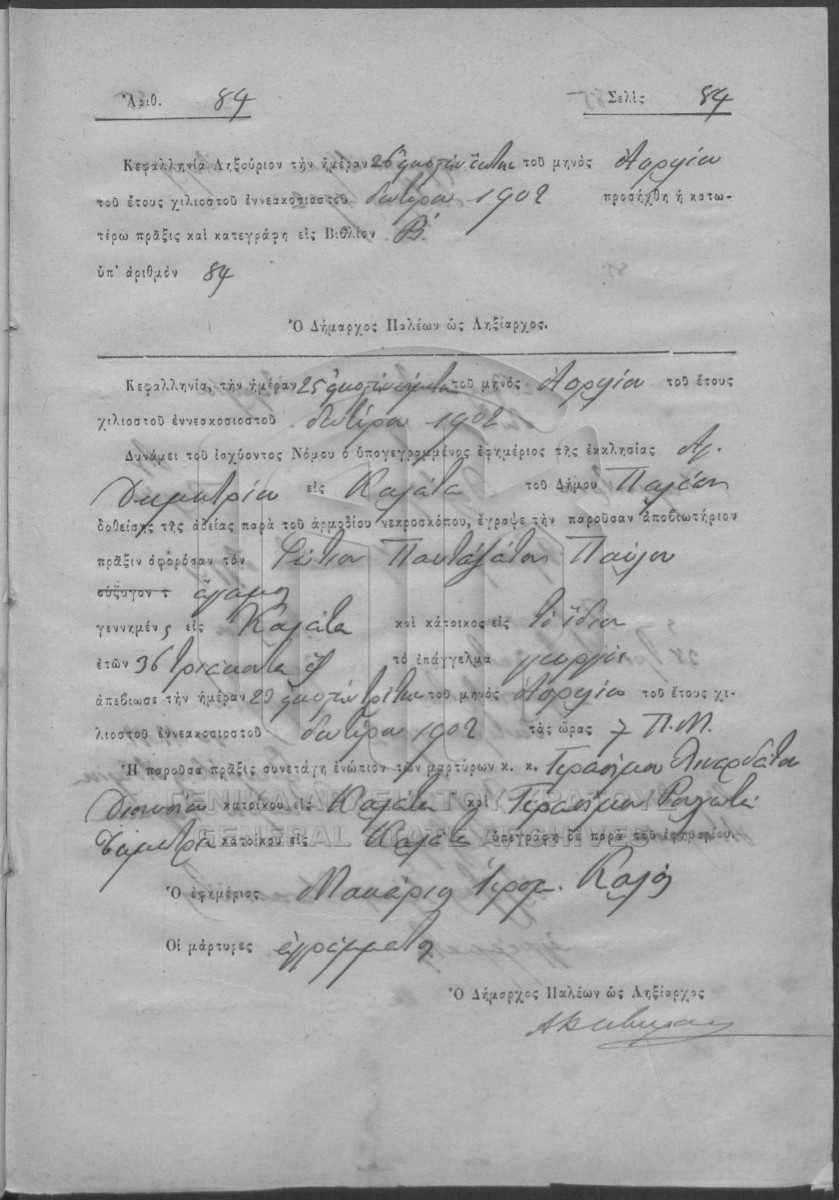 Ἀριθ. 84 Σελὶς 84
Κεφαλληνία Ληξούριον τὴν ἡμέραν 26 εἰκοστὴν ἕκτην τοῦ μηνὸς Ἀπριλίου
τοῦ ἔτους χιλιοστοῦ ἐννεακοσιοστοῦ δευτέρου 1902 προσήχθη ἡ κατω-
τέρω πρᾶξις καὶ κατεγράφη εἰς Βιβλίον Β΄.
ὑπ' ἀριθμὸν 84
Ὁ Δήμαρχος Παλέων ὡς Ληξίαρχος.
Κεφαλληνία, τὴν ἡμέραν 25 εἰκοστὴν πέμπτην τοῦ μηνὸς Ἀπριλίου τοῦ ἔτους
χιλιοστοῦ ἐννεακοσιοστοῦ δευτέρου 1902
Δυνάμει τοῦ ἰσχύοντος Νόμου ὁ ὑπογεγραμμένος ἐφημέριος τῆς ἐκκλησίας Ἁγ.
Δημητρίου εἰς Καλάτα τοῦ Δήμου Παλέων
δοθείσης τῆς ἀδείας παρὰ τοῦ ἁρμοδίου νεκροσκόπου, ἔγραψε τὴν παροῦσαν ἀποβιωτήριον
πρᾶξιν ἀφορῶσαν τὸν Φώτιον Πανταζάτον Παύλου
σύζυγον τ ἄγαμος
γεννημένς εἰς Καλάτα καὶ κάτοικος εἰς τὸ ἴδιον
ἐτῶν 36 τριάκοντα ἓξ τὸ ἐπάγγελμα γεωργὸς
ἀπεβίωσε τὴν ἡμέραν 23 εἰκοστὴν τρίτην τοῦ μηνὸς Ἀπριλίου τοῦ ἔτους χι-
λιοστοῦ ἐννεακοσιοστοῦ δευτέρου 1902 τὰς ὥρας 7 Π.Μ.
Ἡ παροῦσα πρᾶξις συνετάγη ἐνώπιον τῶν μαρτύρων κ. κ. Γερασίμου Λιναρδάτου
Διονυσίου κατοίκου εἰς Καλάτα καὶ Γερασίμου
κατοίκου εἰς Καλάτα ὑπεγράφη δὲ παρὰ τοῦ ἐφημερίου.
Ὁ ἐφημέριος Μακάριος Ἱερομ. Καλὸς
Οἱ μάρτυρες ἀγράμματοι
Ὁ Δήμαρχος Παλέων ὡς Ληξίαρχος
ΓΕΝΙΚΑ ΑΡΧΕΙΑ ΤΟΥ ΚΡΑΤΟΥΣ
GENERAL STATE ARCHIVES